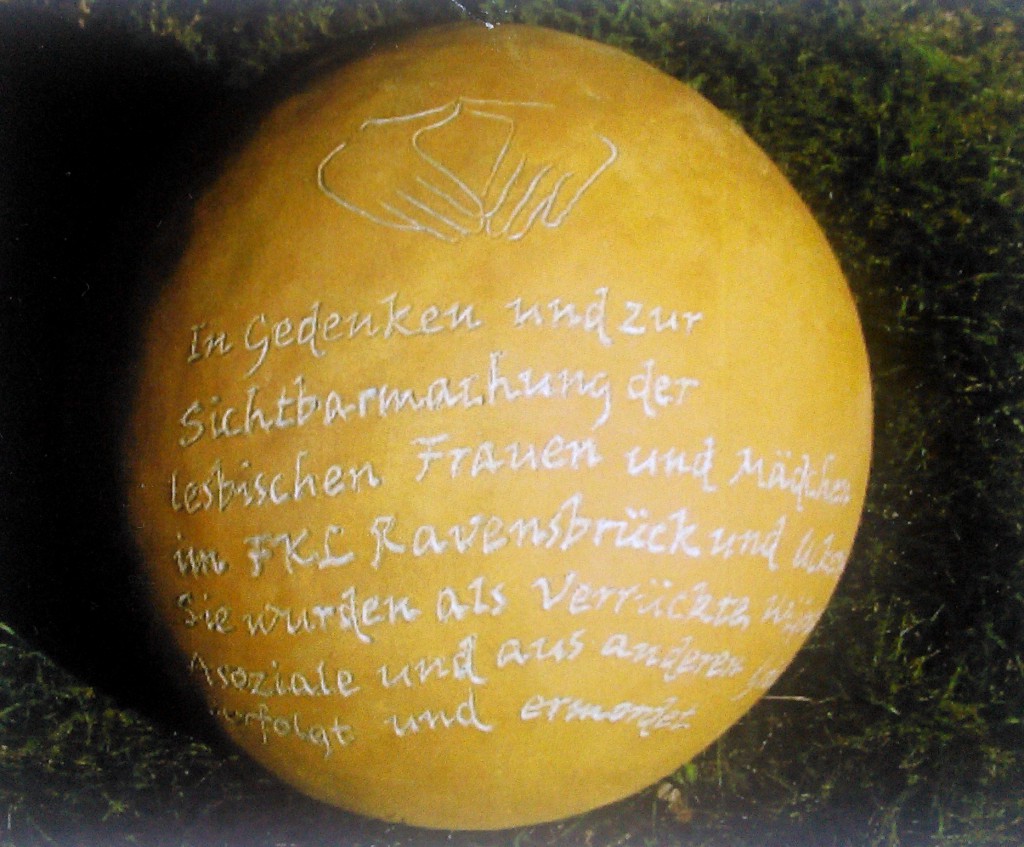 In Gedenken und zur
Sichtbarmachung der
lesbischen Frauen und Mädchen
im FKL Ravensbrück und
Sie wurden als Verrückte
Asoziale und aus anderen
verfolgt und ermordet